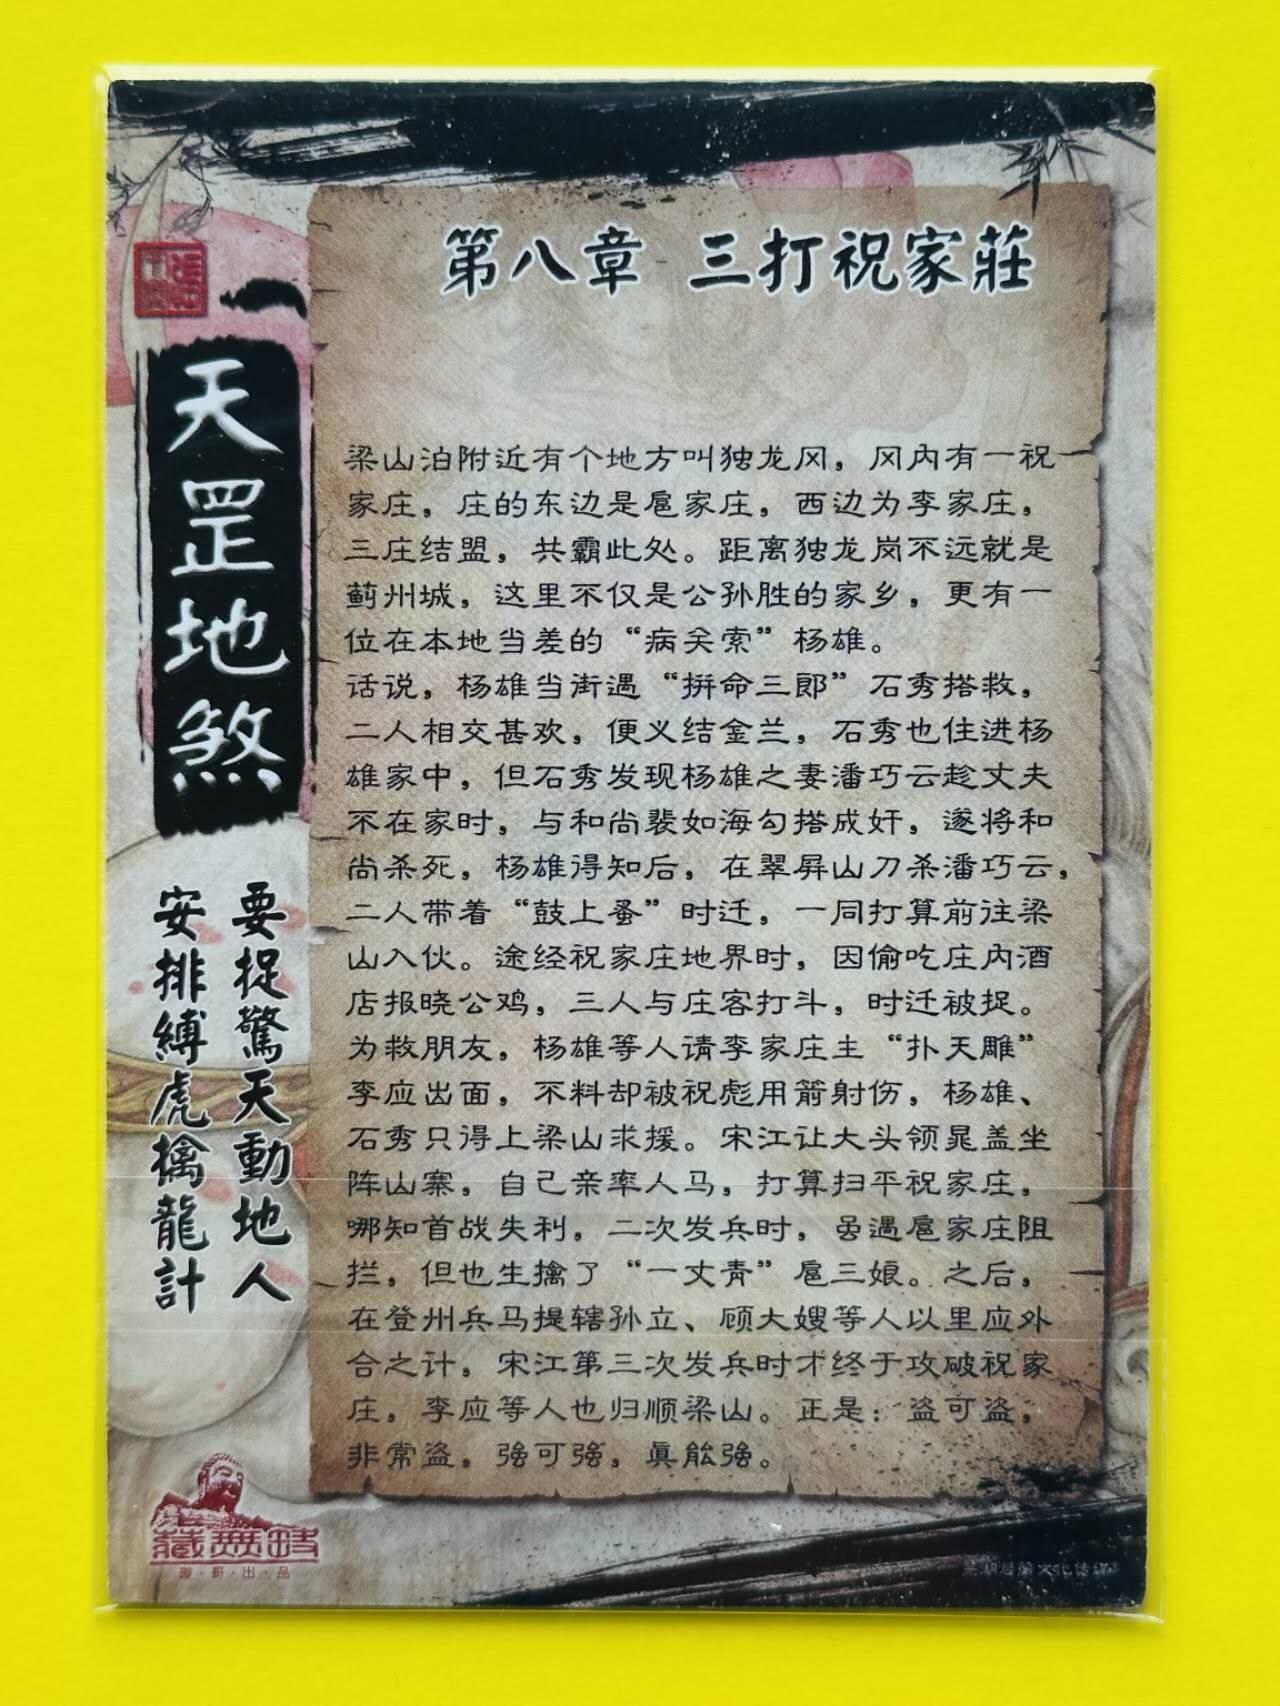 第八章 三打祝家莊
天罡地煞
要捉驚天動地人
安排縛虎擒龍計
梁山泊附近有个地方叫独龙冈，冈内有一祝
家庄，庄的东边是扈家庄，西边为李家庄，
三庄结盟，共霸此处。距离独龙岗不远就是
蓟州城，这里不仅是公孙胜的家乡，更有一
位在本地当差的“病关索”杨雄。
话说，杨雄当街遇“拼命三郎”石秀搭救，
二人相交甚欢，便义结金兰，石秀也住进杨
雄家中，但石秀发现杨雄之妻潘巧云趁丈夫
不在家时，与和尚裴如海勾搭成奸，遂将和
尚杀死，杨雄得知后，在翠屏山刀杀潘巧云，
二人带着“鼓上蚤”时迁，一同打算前往梁
山入伙。途经祝家庄地界时，因偷吃庄内酒
店报晓公鸡，三人与庄客打斗，时迁被捉。
为救朋友，杨雄等人请李家庄主“扑天雕”
李应出面，不料却被祝彪用箭射伤，杨雄、
石秀只得上梁山求援。宋江让大头领晁盖坐
阵山寨，自己亲率人马，打算扫平祝家庄，
哪知首战失利，二次发兵时，虽遇扈家庄阻
拦，但也生擒了“一丈青”扈三娘。之后，
在登州兵马提辖孙立、顾大嫂等人以里应外
合之计，宋江第三次发兵时才终于攻破祝家
庄，李应等人也归顺梁山。正是：盗可盗，
非常盗，强可强，真能强。